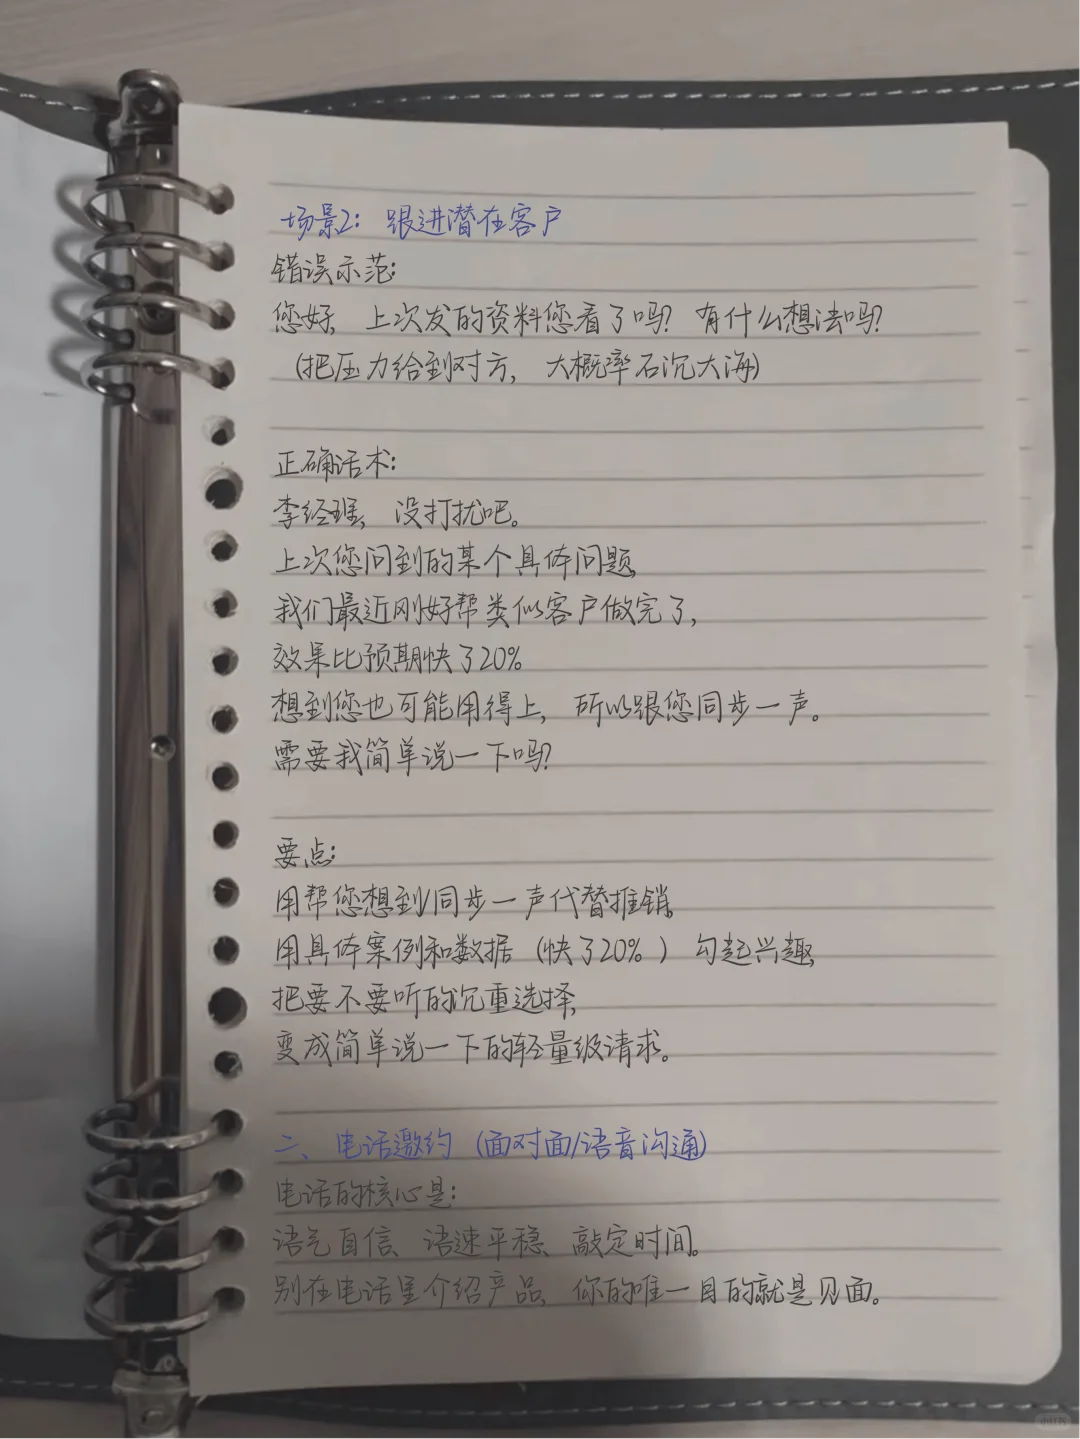 场景2：跟进潜在客户
错误示范：
您好，上次发的资料您看了吗？有什么想法吗？
（把压力给到对方，大概率石沉大海）
正确话术：
李经理，没打扰吧。
上次您问到的某个具体问题，
我们最近刚好帮类似客户做完了，
效果比预期快了20%
想到您也可能用得上，所以跟您同步一声。
需要我简单说一下吗？
要点：
用帮您想到/同步一声代替推销，
用具体案例和数据（快了20%）勾起兴趣，
把要不要听的沉重选择，
变成简单说一下的轻量级请求。
二、电话邀约（面对面/语音沟通）
电话的核心是：
语气自信、语速平稳、敲定时间。
别在电话里介绍产品，你的唯一目的就是见面。